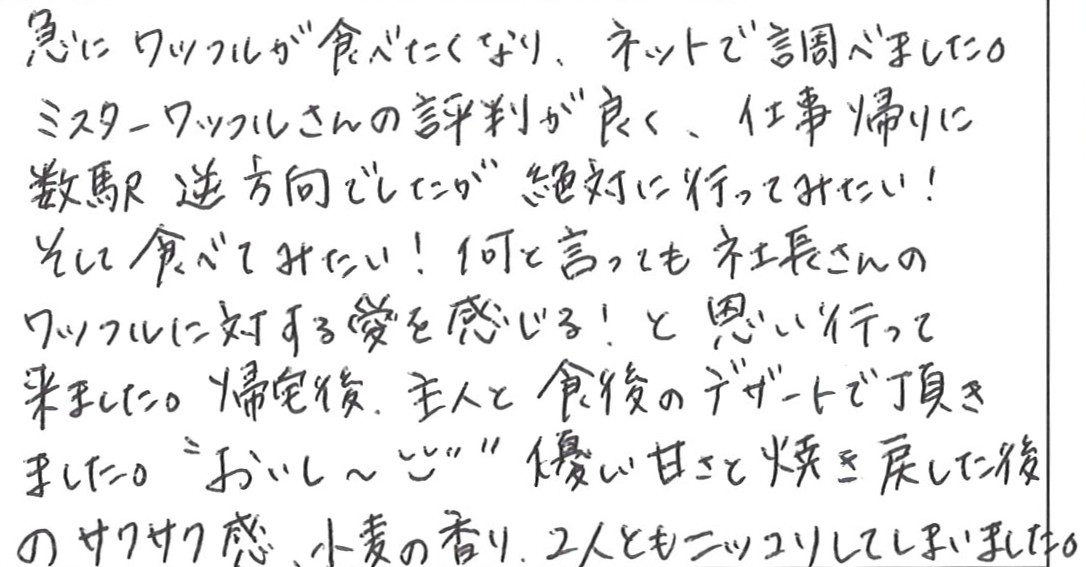 急にワッフルが食べたくなり、ネットで調べました。
ミスターワッフルさんの評判が良く、仕事帰りに
数駅逆方向でしたが絶対に行ってみたい！
そして食べてみたい！何と言っても社長さんの
ワッフルに対する愛を感じる！と思い行って
来ました。帰宅後、主人と食後のデザートで頂き
ました。〝おいし～〟優しい甘さと焼き戻した後
のサクサク感、小麦の香り、2人ともニッコリしてしまいました。